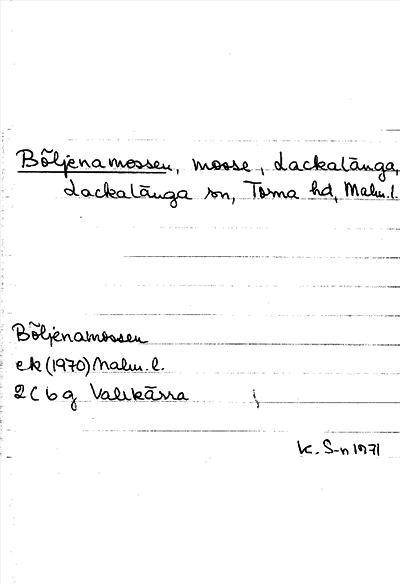 Böljenamossen, mosse, Lackalänga,
Lackalänga sn, Torna hd, Malm.l.
Böljenamossen
ek (1970) Malm.l.
2C 6g Valkärra
K. S-n 1971